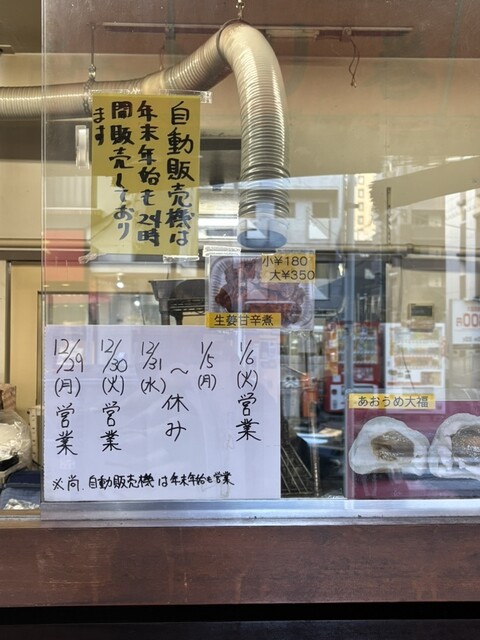 自動販売機は
年末年始も24時
間販売しており
ます
小¥180
大¥350
生姜甘辛煮
12/29 (月) 営業
12/30 (火) 営業
12/31 (水) 〜 1/5 (月) 休み
1/6 (火) 営業
※尚、自動販売機は年末年始も営業
あおうめ大福